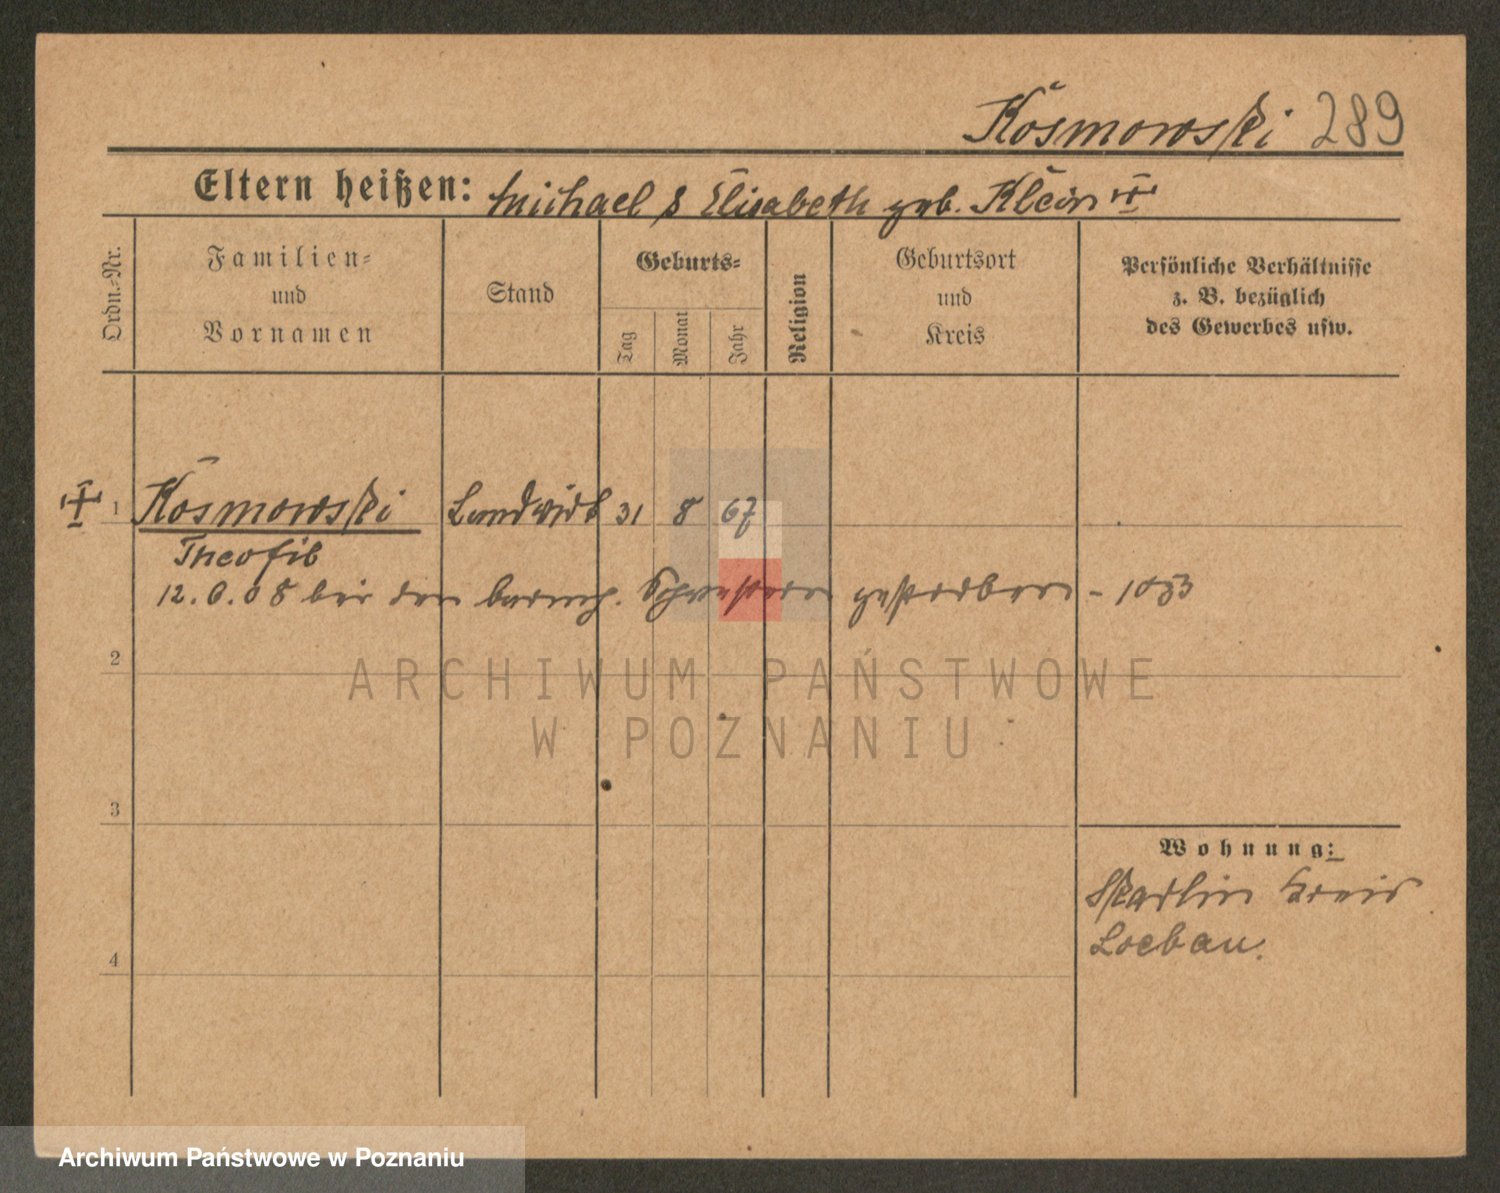 Kosmowski 289
Eltern heißen: Michael & Elisabeth geb. Klein
Ordn.-Nr.
Familien-
und
Vornamen
Stand
Geburts-
Tag
Monat
Jahr
Religion
Geburtsort
und
Kreis
Persönliche Verhältnisse
z. B. bezüglich
des Gewerbes usw.
1 Kosmowski Landwirt 31 8 67
Theofil
12. 6. 08 bei den barmh. Schwestern gestorben - 1033
2
3
4
Wohnung:
Skarlin Kreis
Loebau.
ARCHIWUM PAŃSTWOWE
W POZNANIU
Archiwum Państwowe w Poznaniu